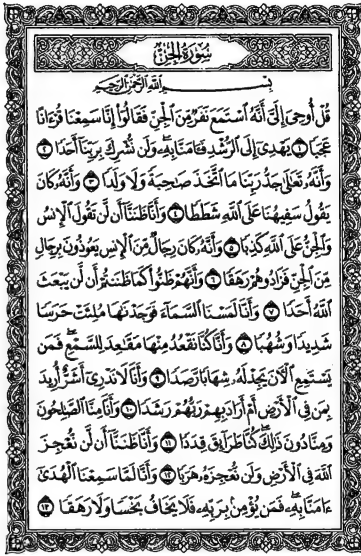 سُورَةُ الجِنِّ
بِسْمِ ٱللَّهِ ٱلرَّحْمَٰنِ ٱلرَّحِيمِ
قُلْ أُوحِىَ إِلَىَّ أَنَّهُ ٱسْتَمَعَ نَفَرٌ مِّنَ ٱلْجِنِّ فَقَالُوٓا۟ إِنَّا سَمِعْنَا قُرْءَانًا
عَجَبًا ١ يَهْدِىٓ إِلَى ٱلرُّشْدِ فَـَٔامَنَّا بِهِۦ ۖ وَلَن نُّشْرِكَ بِرَبِّنَآ أَحَدًا ٢
وَأَنَّهُۥ تَعَٰلَىٰ جَدُّ رَبِّنَا مَا ٱتَّخَذَ صَٰحِبَةً وَلَا وَلَدًا ٣ وَأَنَّهُۥ كَانَ
يَقُولُ سَفِيهُنَا عَلَى ٱللَّهِ شَطَطًا ٤ وَأَنَّا ظَنَنَّآ أَن لَّن تَقُولَ ٱلْإِنسُ
وَٱلْجِنُّ عَلَى ٱللَّهِ كَذِبًا ٥ وَأَنَّهُۥ كَانَ رِجَالٌ مِّنَ ٱلْإِنسِ يَعُوذُونَ بِرِجَالٍ
مِّنَ ٱلْجِنِّ فَزَادُوهُمْ رَهَقًا ٦ وَأَنَّهُمْ ظَنُّوا۟ كَمَا ظَنَنتُمْ أَن لَّن يَبْعَثَ
ٱللَّهُ أَحَدًا ٧ وَأَنَّا لَمَسْنَا ٱلسَّمَآءَ فَوَجَدْنَٰهَا مُلِئَتْ حَرَسًا
شَدِيدًا وَشُهُبًا ٨ وَأَنَّا كُنَّا نَقْعُدُ مِنْهَا مَقَٰعِدَ لِلسَّمْعِ ۖ فَمَن
يَسْتَمِعِ ٱلْـَٔانَ يَجِدْ لَهُۥ شِهَابًا رَّصَدًا ٩ وَأَنَّا لَا نَدْرِىٓ أَشَرٌّ أُرِيدَ
بِمَن فِى ٱلْأَرْضِ أَمْ أَرَادَ بِهِمْ رَبُّهُمْ رَشَدًا ١٠ وَأَنَّا مِنَّا ٱلصَّٰلِحُونَ
وَمِنَّا دُونَ ذَٰلِكَ ۖ كُنَّا طَرَآئِقَ قِدَدًا ١١ وَأَنَّا ظَنَنَّآ أَن لَّن نُّعْجِزَ
ٱللَّهَ فِى ٱلْأَرْضِ وَلَن نُّعْجِزَهُۥ هَرَبًا ١٢ وَأَنَّا لَمَّا سَمِعْنَا ٱلْهُدَىٰٓ
ءَامَنَّا بِهِۦ ۖ فَمَن يُؤْمِنۢ بِرَبِّهِۦ فَلَا يَخَافُ بَخْسًا وَلَا رَهَقًا ١٣